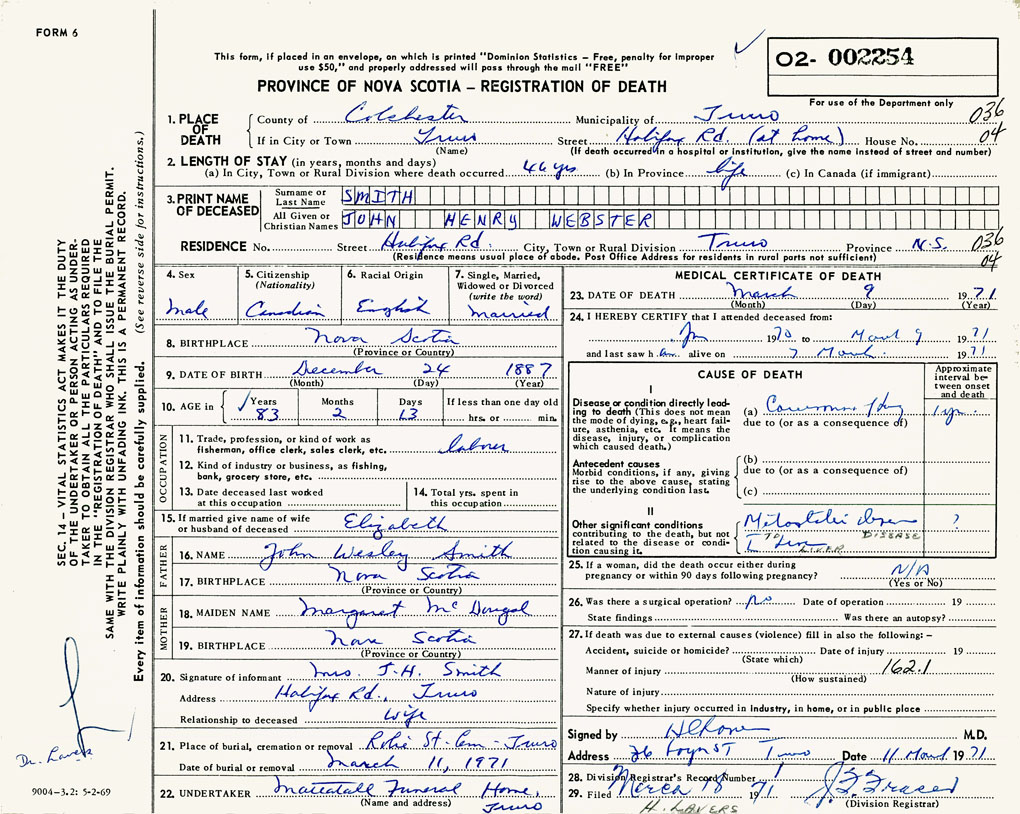 FORM 6
This form, if placed in an envelope, on which is printed "Dominion Statistics – Free, penalty for improper
use $50," and properly addressed will pass through the mail "FREE"
O2- 002254
PROVINCE OF NOVA SCOTIA – REGISTRATION OF DEATH
For use of the Department only
1. PLACE OF DEATH
County of Colchester Municipality of Truro 036
If in City or Town Truro Street Halifax Rd. (at home) House No. 04
(Name) (If death occurred in a hospital or institution, give the name instead of street and number)
2. LENGTH OF STAY (in years, months and days)
(a) In City, Town or Rural Division where death occurred 46 yrs (b) In Province life (c) In Canada (if immigrant)
3. PRINT NAME OF DECEASED
Surname or Last Name SMITH
All Given or Christian Names JOHN HENRY WEBSTER
RESIDENCE No. Street Halifax Rd. City, Town or Rural Division Truro Province N.S. 036
(Residence means usual place of abode. Post Office Address for residents in rural parts not sufficient) 04
4. Sex
male
5. Citizenship
(Nationality)
Canadian
6. Racial Origin
English
7. Single, Married,
Widowed or Divorced
(write the word)
married
8. BIRTHPLACE Nova Scotia
(Province or Country)
9. DATE OF BIRTH December 24 1887
(Month) (Day) (Year)
10. AGE in Years Months Days If less than one day old
83 2 13 hrs. or min.
OCCUPATION
11. Trade, profession, or kind of work as
fisherman, office clerk, sales clerk, etc. labrer
12. Kind of industry or business, as fishing,
bank, grocery store, etc.
13. Date deceased last worked
at this occupation
14. Total yrs. spent in
this occupation
15. If married give name of wife
or husband of deceased Elizabeth
FATHER
16. NAME John Wesley Smith
17. BIRTHPLACE Nova Scotia
(Province or Country)
MOTHER
18. MAIDEN NAME Margaret McDougal
19. BIRTHPLACE Nova Scotia
(Province or Country)
20. Signature of informant Mrs. J.H. Smith
Address Halifax Rd., Truro
Relationship to deceased Wife
21. Place of burial, cremation or removal Robie St. Cem - Truro
Date of burial or removal March 11, 1971
22. UNDERTAKER Mattatall Funeral Home,
(Name and address) Truro
MEDICAL CERTIFICATE OF DEATH
23. DATE OF DEATH March 9 1971
(Month) (Day) (Year)
24. I HEREBY CERTIFY that I attended deceased from:
Jan 1970 to March 9 1971
and last saw him alive on 7 March 1971
CAUSE OF DEATH
Approximate
interval be-
tween onset
and death
I
Disease or condition directly lead-
ing to death (This does not mean
the mode of dying, e.g., heart fail-
ure, asthenia, etc. It means the
disease, injury, or complication
which caused death.)
(a) 1 yr.
due to (or as a consequence of)
Antecedent causes
Morbid conditions, if any, giving
rise to the above cause, stating
the underlying condition last.
(b)
due to (or as a consequence of)
(c)
II
Other significant conditions
contributing to the death, but not
related to the disease or condi-
tion causing it.
?
TO DISEASE
LIVER
25. If a woman, did the death occur either during
pregnancy or within 90 days following pregnancy? N/A
(Yes or No)
26. Was there a surgical operation? no Date of operation 19
State findings Was there an autopsy?
27. If death was due to external causes (violence) fill in also the following: –
Accident, suicide or homicide? Date of injury 19
(State which)
Manner of injury 162.1
(How sustained)
Nature of injury
Specify whether injury occurred in industry, in home, or in public place
Signed by M.D.
Address Truro Date 11 March 1971
28. Division Registrar's Record Number 1
29. Filed March 18 1971 J.F. Fraser
H. LAVERS (Division Registrar)
SEC. 14 – VITAL STATISTICS ACT MAKES IT THE DUTY
OF THE UNDERTAKER OR PERSON ACTING AS UNDER-
TAKER TO OBTAIN ALL THE PARTICULARS REQUIRED
IN THE "REGISTRATION OF DEATH" AND TO FILE THE
SAME WITH THE DIVISION REGISTRAR WHO SHALL ISSUE THE BURIAL PERMIT.
WRITE PLAINLY WITH UNFADING INK. THIS IS A PERMANENT RECORD.
Every item of information should be carefully supplied. (See reverse side for instructions.)
Dr. Lavers
9004-3.2: 5-2-69